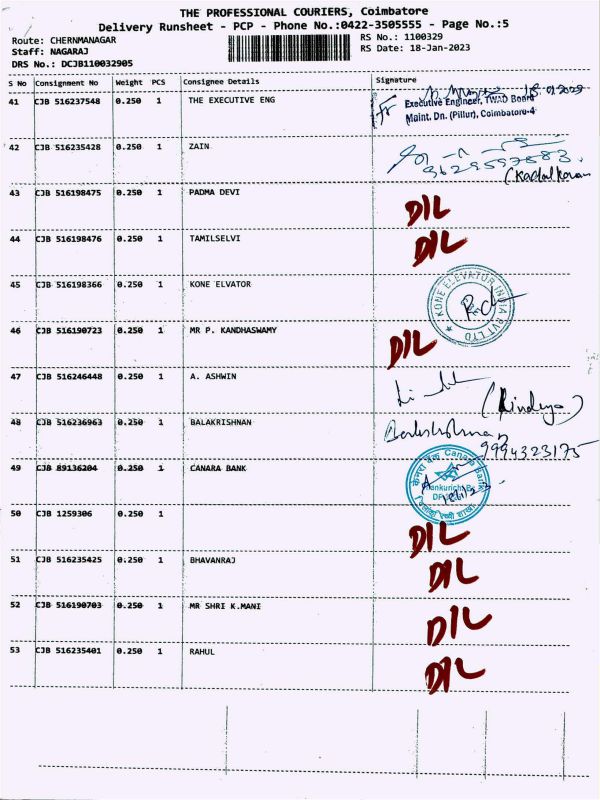 THE PROFESSIONAL COURIERS, Coimbatore
Delivery Runsheet - PCP - Phone No.:0422-3505555 - Page No.:5
Route: CHERNMANAGAR RS No.: 1100329
Staff: NAGARAJ RS Date: 18-Jan-2023
DRS No.: DCJB110032905
S No Consignment No Weight PCS Consignee Details Signature
41 CJB 516237548 0.250 1 THE EXECUTIVE ENG
Executive Engineer, TWAD Board
Maint. Dn. (Pillur), Coimbatore-4
42 CJB 516235428 0.250 1 ZAIN
9629597583
43 CJB 516198475 0.250 1 PADMA DEVI D/L
44 CJB 516198476 0.250 1 TAMILSELVI D/L
45 CJB 516198366 0.250 1 KONE ELVATOR
KONE ELEVATOR INDIA PVT LTD
46 CJB 516190723 0.250 1 MR P. KANDHASWAMY D/L
47 CJB 516246448 0.250 1 A. ASHWIN
48 CJB 516236963 0.250 1 BALAKRISHNAN
9994323175
49 CJB 89136204 0.250 1 CANARA BANK
केनरा बैंक Canara Bank
50 CJB 1259306 0.250 1 D/L
51 CJB 516235425 0.250 1 BHAVANRAJ D/L
52 CJB 516190703 0.250 1 MR SHRI K.MANI D/L
53 CJB 516235401 0.250 1 RAHUL D/L